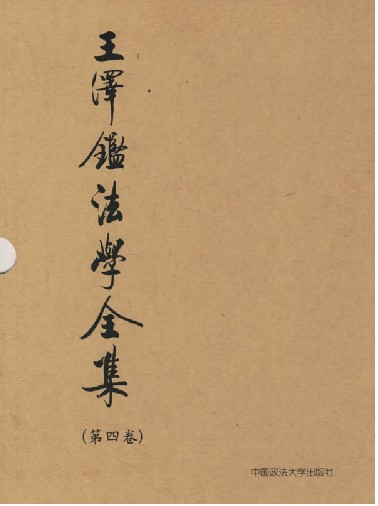 王澤鑑法學全集
(第四卷)
中国政法大学出版社